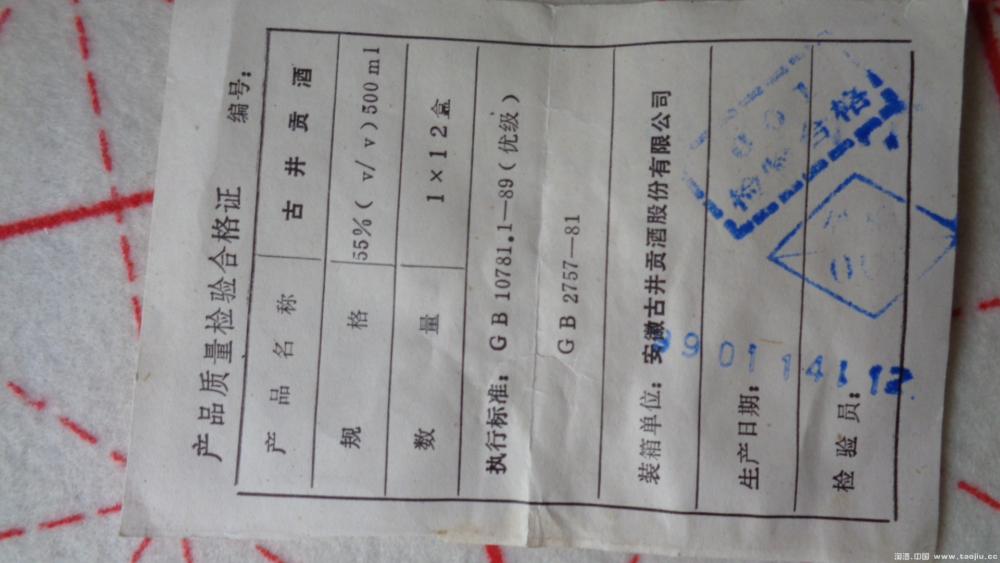 产品质量检验合格证
编号：
产品名称 古井贡酒
规格 55%（v/v）500ml
数量 1×12盒
执行标准：GB10781.1—89（优级）
GB2757—81
装箱单位：安徽古井贡酒股份有限公司
生产日期：
检验员：
淘酒.中国 www.taojiu.cc